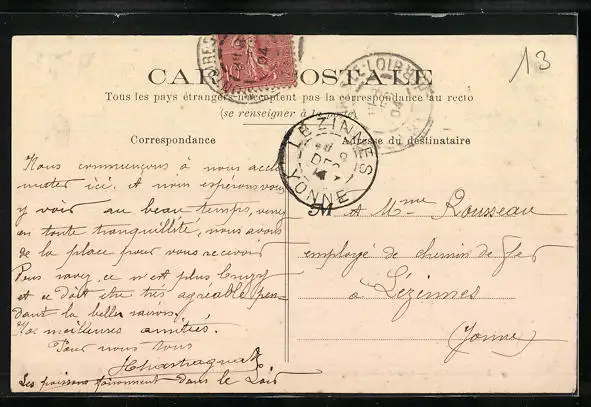 13
CARTE POSTALE
Tous les pays étrangers n'acceptent pas la correspondance au recto
(se renseigner à la poste)
Correspondance
Adresse du destinataire
LÉZINNES
DEC
YONNE
04
Nous commençons à nous accli
mater ici. et nous espérons vous
y voir au beau temps, venez
en toute tranquillité, nous avons
de la place pour vous recevoir
Vous savez, ce n'est plus
et ce doit être très agréable pen-
dant la belle saison.
Nos meilleures amitiés.
Pour nous tous
Les poissons foisonnent dans le Loir
M
A Mme Rousseau
employé de chemin de fer
à Lézinnes
(Yonne)